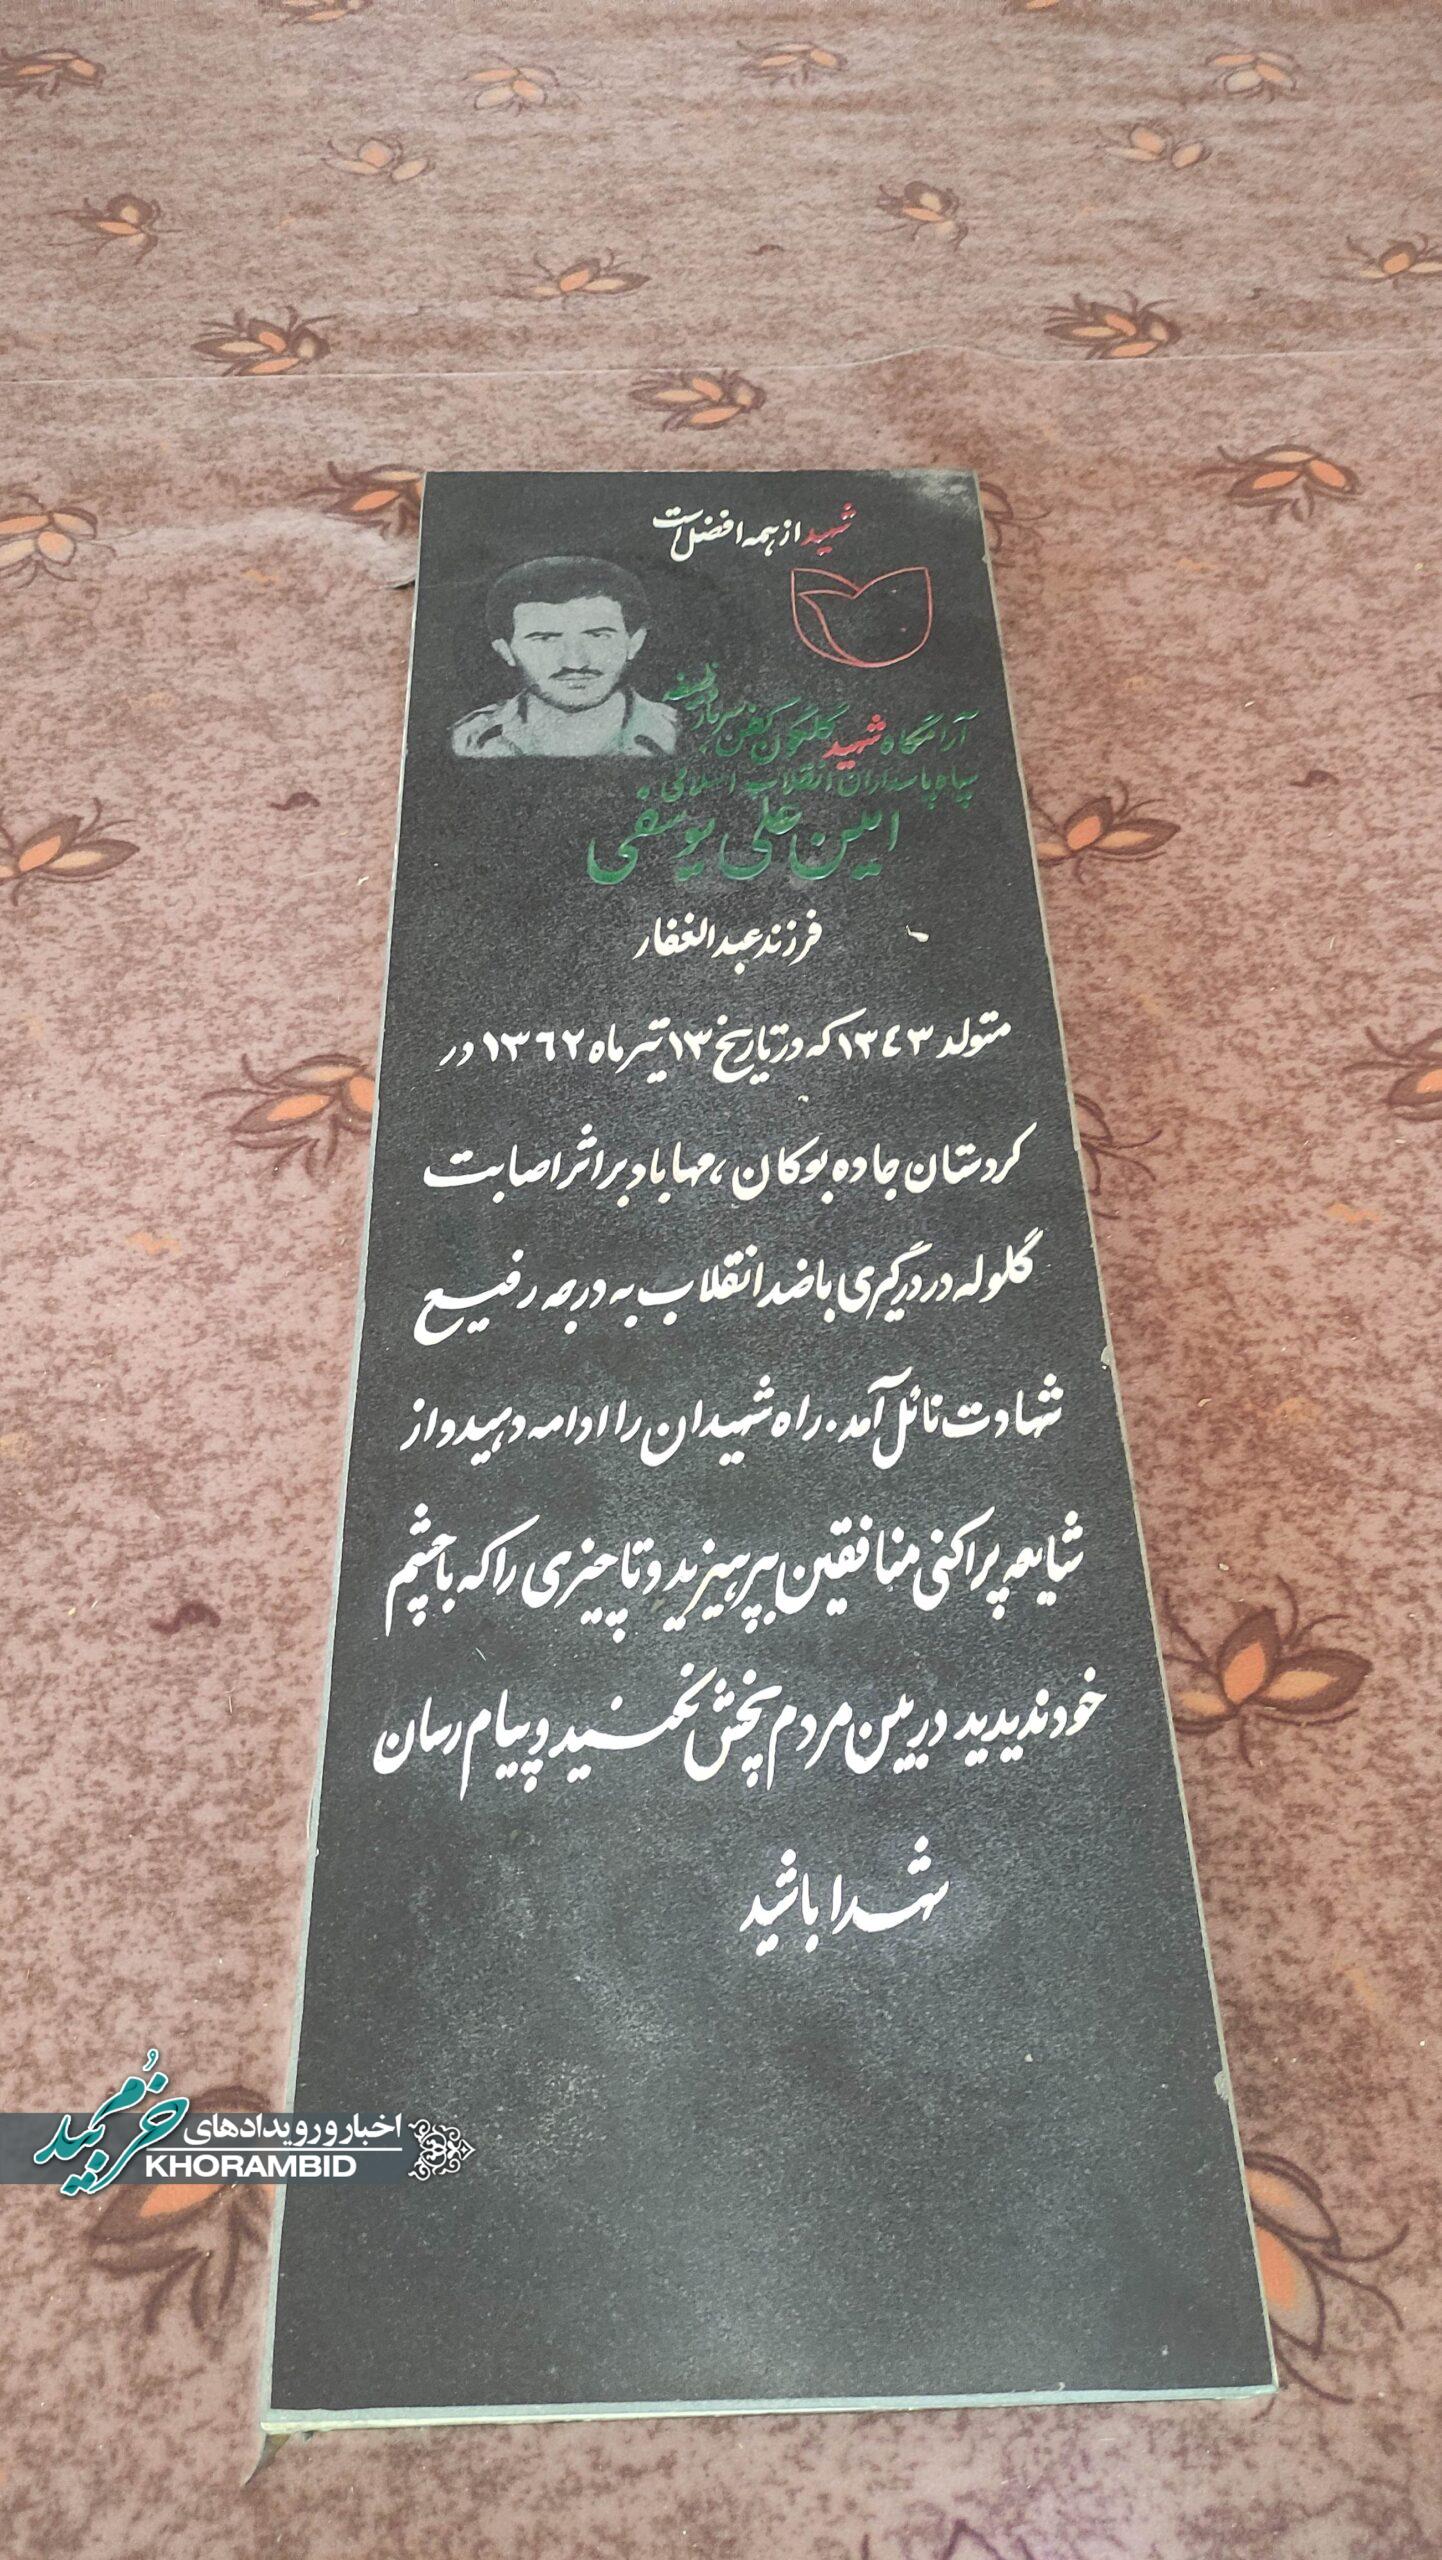 شهید از همه افضل است
آرامگاه شهید گلگون کفن سرباز وظیفه
سپاه پاسداران انقلاب اسلامی
امین علی یوسفی
فرزند عبدالغفار
متولد ۱۳۴۳ که در تاریخ ۱۳ تیر ماه ۱۳۶۲ در
کردستان جاده بوکان ، مهاباد بر اثر اصابت
گلوله در درگیری با ضد انقلاب به درجه رفیع
شهادت نائل آمد . راه شهیدان را ادامه دهید و از
شایعه پراکنی منافقین بپرهیزید و تا چیزی را که با چشم
خود ندیدید در بین مردم پخش نکنید و پیام رسان
شهدا باشید
اخبار و رویدادهای
خرمبید
KHORAMBID